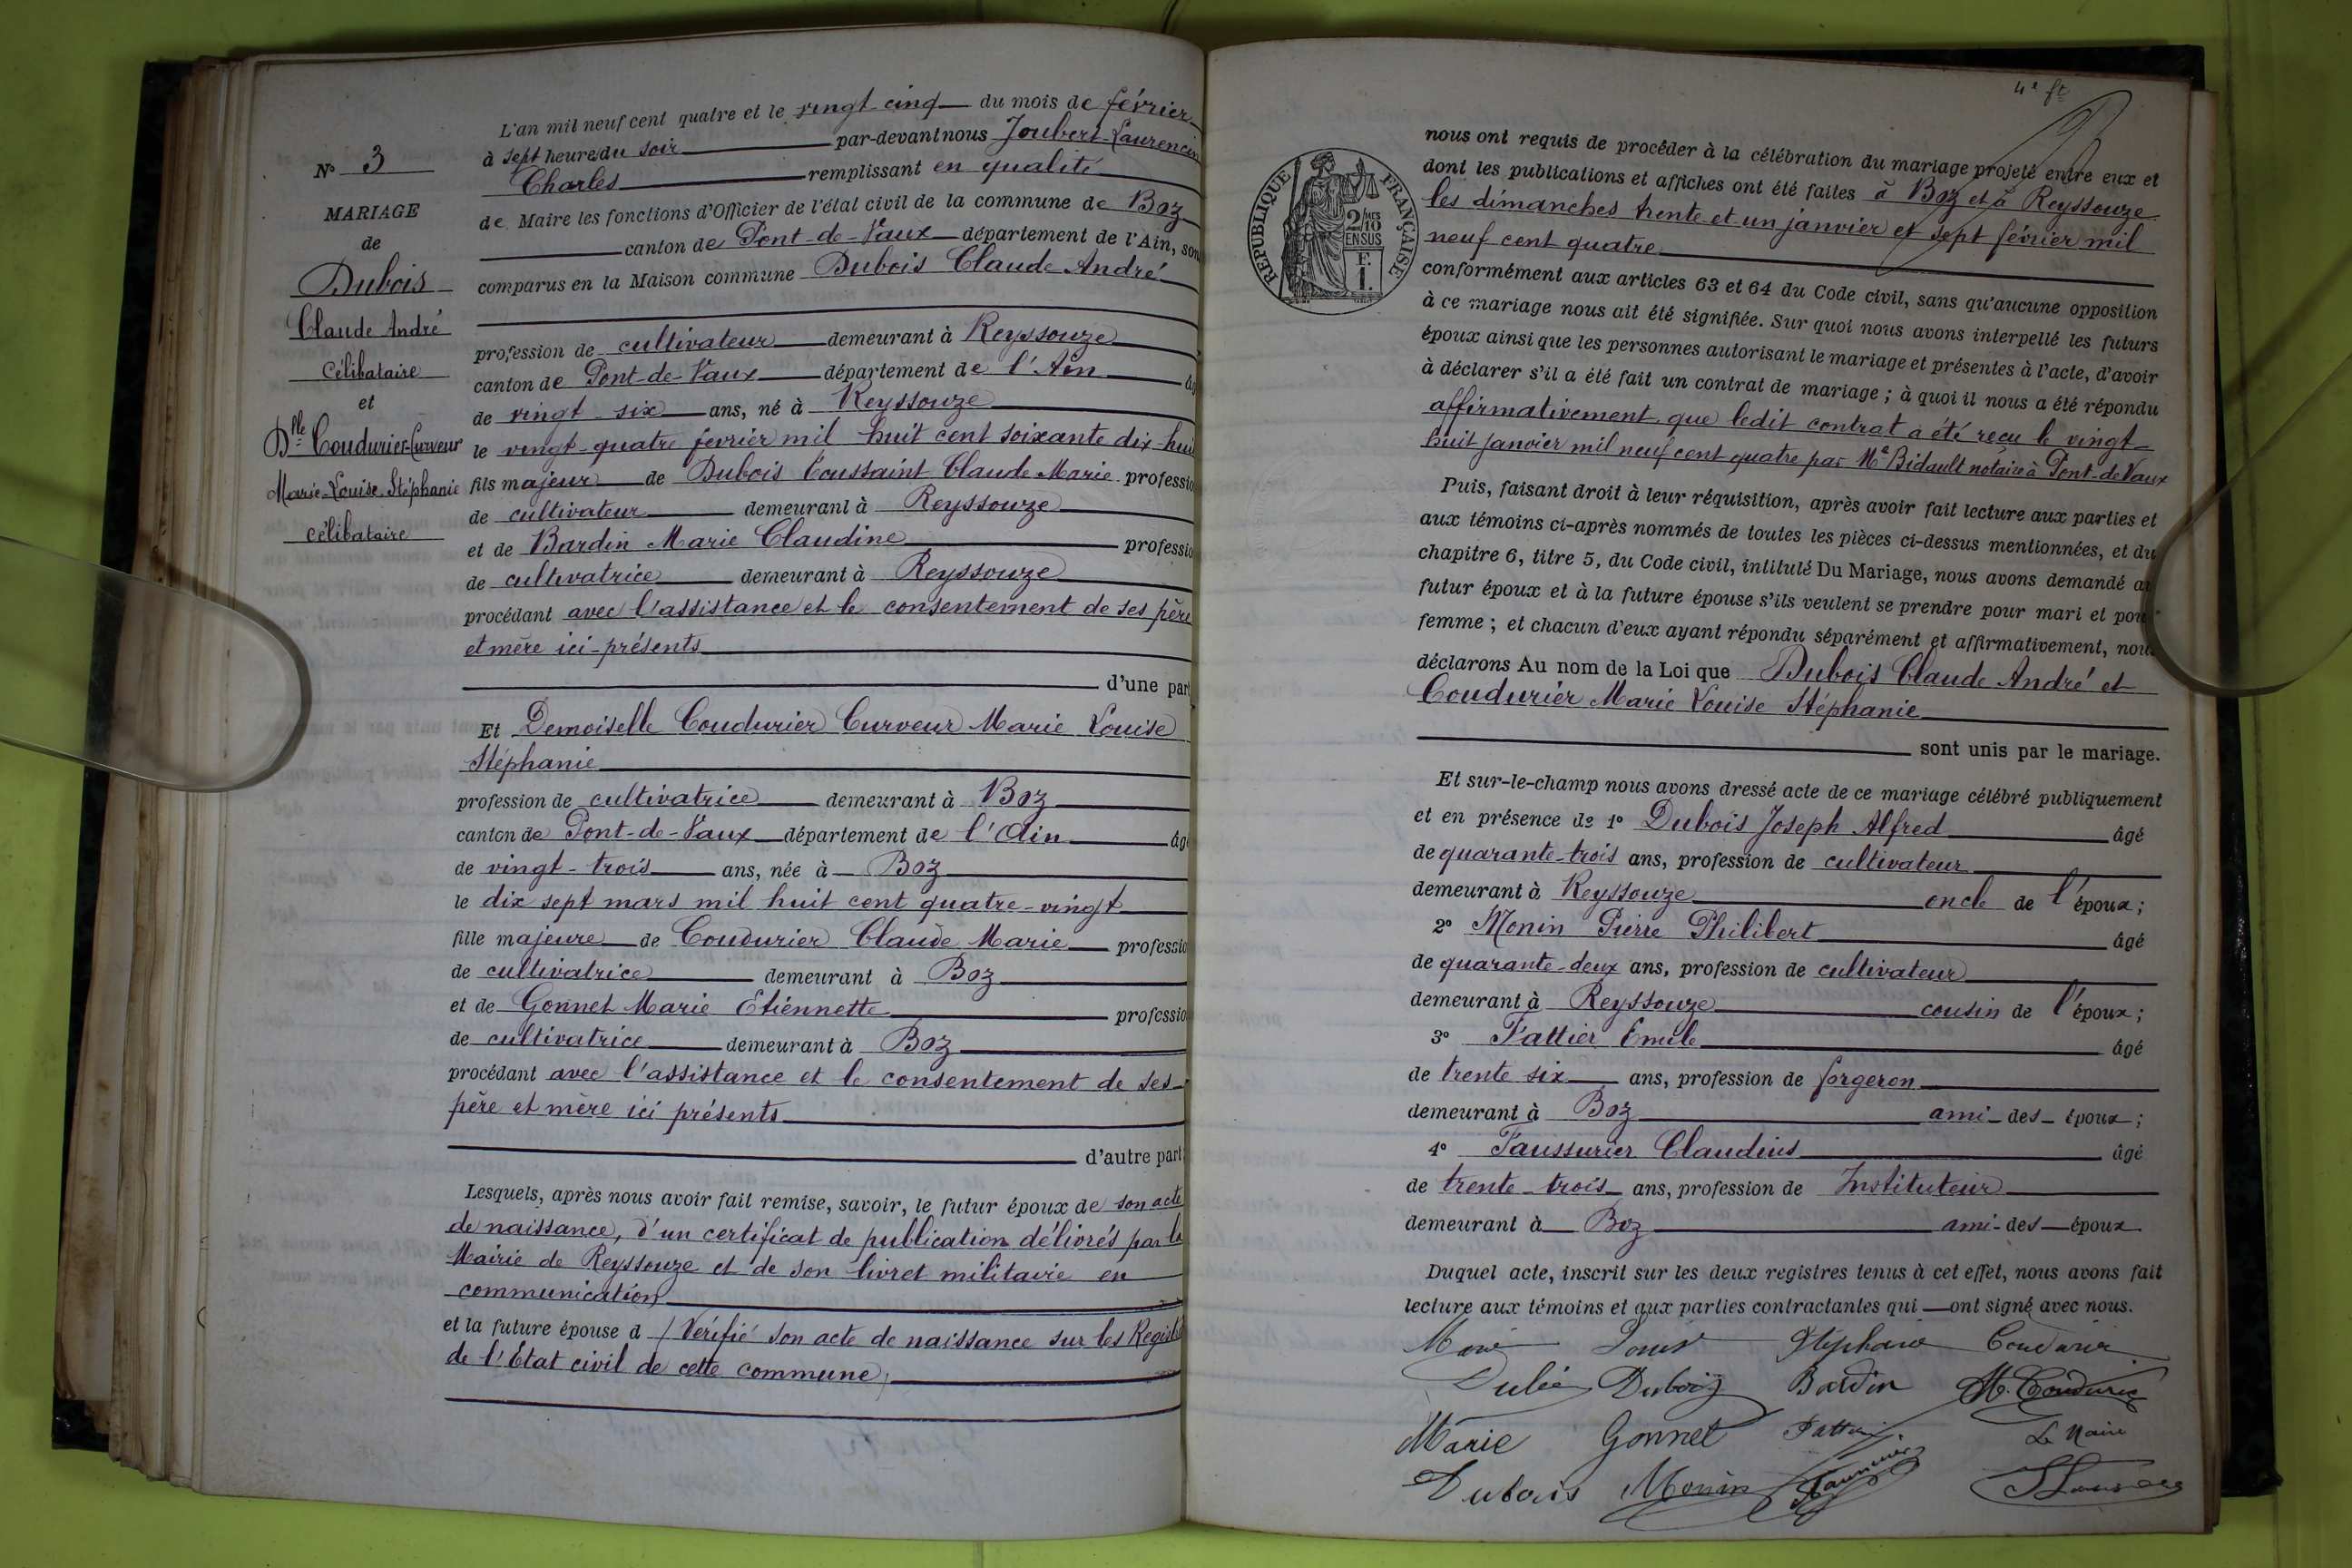 N° 3
MARIAGE
de
Dubois
Claude André
Célibataire
et
Dlle Coudurier-Curveur
Marie-Louise Stéphanie
célibataire
L'an mil neuf cent quatre et le vingt cinq du mois de février
à sept heure du soir par-devant nous Joubert-Laurencin
Charles remplissant en qualité
de Maire les fonctions d'Officier de l'état civil de la commune de Boz
canton de Pont-de-Vaux département de l'Ain, son
comparus en la Maison commune Dubois Claude André
profession de cultivateur demeurant à Reyssouze
canton de Pont-de-Vaux département de l'Ain âg
de vingt-six ans, né à Reyssouze
le vingt-quatre février mil huit cent soixante dix-huit
fils majeur de Dubois Toussaint Claude Marie professio
de cultivateur demeurant à Reyssouze
et de Bardin Marie Claudine professio
de cultivatrice demeurant à Reyssouze
procédant avec l'assistance et le consentement de ses père
et mère ici-présents
d'une part
Et Demoiselle Coudurier Curveur Marie Louise
Stéphanie
profession de cultivatrice demeurant à Boz
canton de Pont-de-Vaux département de l'Ain âgé
de vingt-trois ans, née à Boz
le dix sept mars mil huit cent quatre-vingt
fille majeure de Coudurier Claude Marie professio
de cultivatrice demeurant à Boz
et de Gonnet Marie Etiennette professio
de cultivatrice demeurant à Boz
procédant avec l'assistance et le consentement de ses
père et mère ici présents
d'autre part;
Lesquels, après nous avoir fait remise, savoir, le futur époux de son acte
de naissance, d'un certificat de publication délivrés par la
Mairie de Reyssouze et de son livret militaire en
communication
et la future épouse d / Vérifié son acte de naissance sur les Regist
de l'Etat civil de cette commune,
4e ft
RÉPUBLIQUE FRANÇAISE
2/10
EN SUS
F.
1.
nous ont requis de procéder à la célébration du mariage projeté entre eux et
dont les publications et affiches ont été faites à Boz et à Reyssouze
les dimanches trente et un janvier et sept février mil
neuf cent quatre
conformément aux articles 63 et 64 du Code civil, sans qu'aucune opposition
à ce mariage nous ait été signifiée. Sur quoi nous avons interpellé les futurs
époux ainsi que les personnes autorisant le mariage et présentes à l'acte, d'avoir
à déclarer s'il a été fait un contrat de mariage; à quoi il nous a été répondu
affirmativement que ledit contrat a été reçu le vingt-
huit janvier mil neuf cent quatre par Me Bidault notaire à Pont-de-Vaux
Puis, faisant droit à leur réquisition, après avoir fait lecture aux parties et
aux témoins ci-après nommés de toutes les pièces ci-dessus mentionnées, et du
chapitre 6, titre 5, du Code civil, intitulé Du Mariage, nous avons demandé au
futur époux et à la future épouse s'ils veulent se prendre pour mari et pour
femme; et chacun d'eux ayant répondu séparément et affirmativement, nous
déclarons Au nom de la Loi que Dubois Claude André et
Coudurier Marie Louise Stéphanie
sont unis par le mariage.
Et sur-le-champ nous avons dressé acte de ce mariage célébré publiquement
et en présence de 1° Dubois Joseph Alfred âgé
de quarante-trois ans, profession de cultivateur
demeurant à Reyssouze oncle de l'époux;
2° Monin Pierre Philibert âgé
de quarante-deux ans, profession de cultivateur
demeurant à Reyssouze cousin de l'époux;
3° Pattier Emile âgé
de trente six ans, profession de forgeron
demeurant à Boz ami des époux;
4° Faussurier Claudius âgé
de trente-trois ans, profession de Instituteur
demeurant à Boz ami-des époux
Duquel acte, inscrit sur les deux registres tenus à cet effet, nous avons fait
lecture aux témoins et aux parties contractantes qui ont signé avec nous.
Marie Louise Stéphanie Coudurier
Dubois Bardin M. Coudurier
Marie Gonnet Pattier Le Maire
Dubois Monin